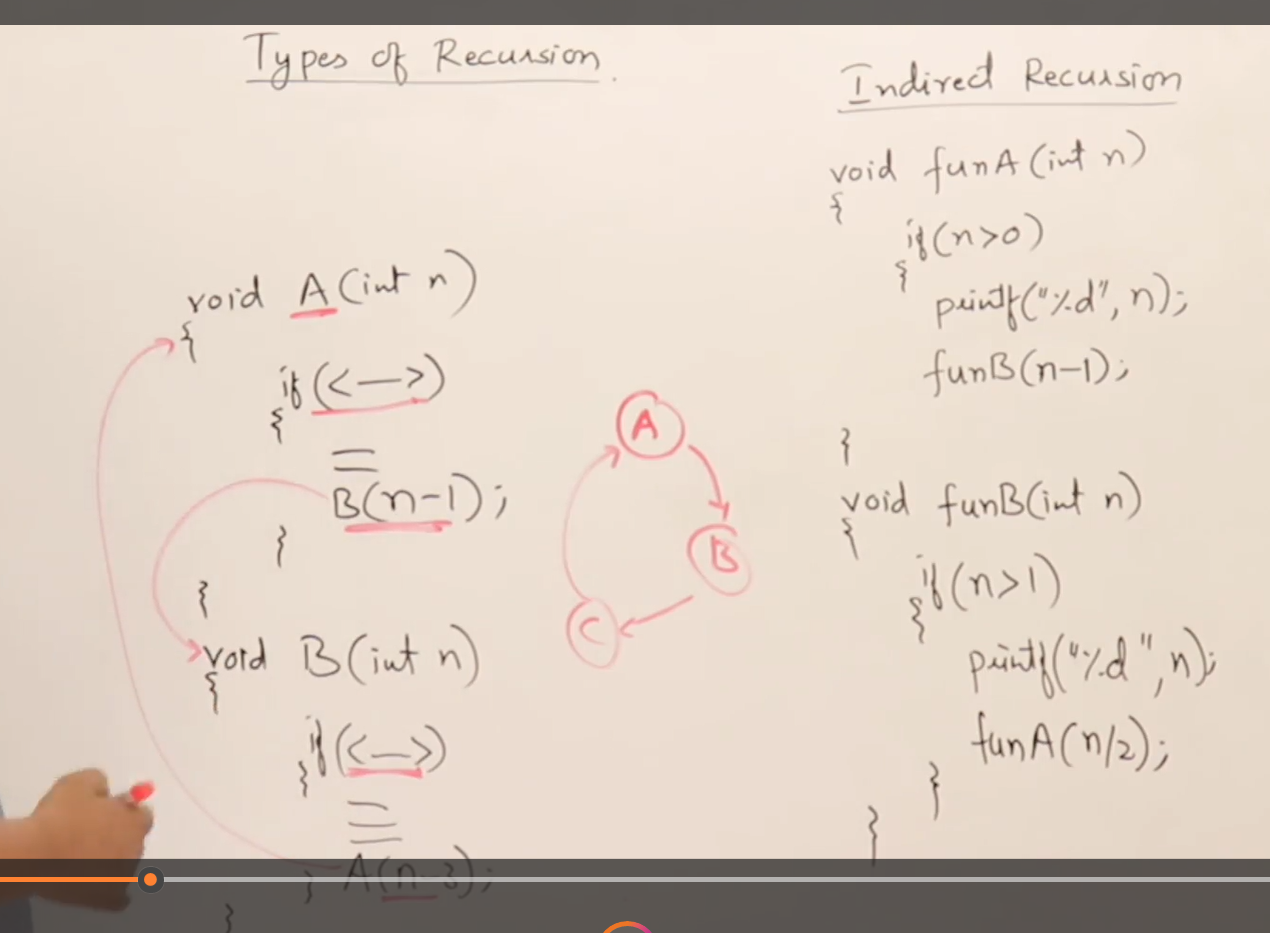 Types of Recursion
void A(int n)
{
if(<—>)
{
B(n-1);
}
}
void B(int n)
{
if(<—>)
{
A(n-3);
}
}
A
B
C
Indirect Recursion
void funA(int n)
{
if(n>0)
{
printf("%d", n);
funB(n-1);
}
void funB(int n)
{
if(n>1)
{
printf("%d", n);
funA(n/2);
}
}